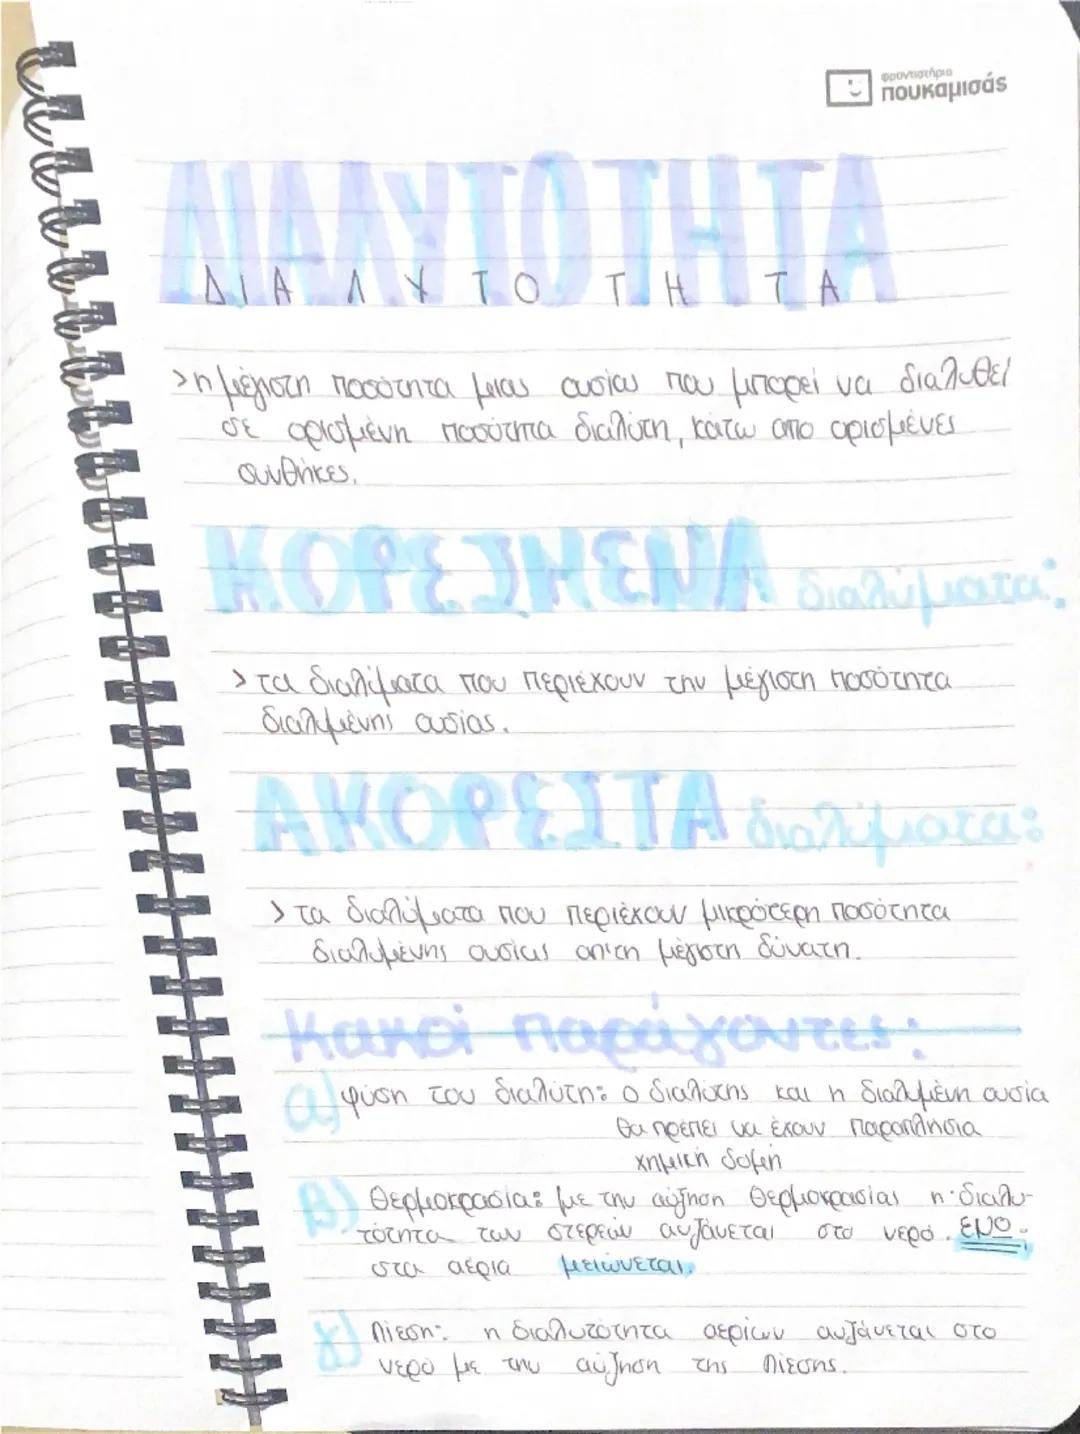 φροντιστήριο
πουκαμισάς
ΔΙΑΛΥΤΟΤΗΤΑ
ΔΙΑΛΥΤΟΤΗΤΑ
>η μέγιστη ποσότητα μιας ουσίας που μπορεί να διαλυθεί
σε ορισμένη ποσότητα διαλύτη, κάτω απο ορισμένες
συνθήκες.
ΚΟΡΕΣΜΕΝΑ διαλύματα:
> τα διαλύματα που περιέχουν την μέγιστη ποσότητα
διαλυμένης ουσίας.
ΑΚΟΡΕΣΤΑ διαλύματα:
> τα διαλύματα που περιέχουν μικρότερη ποσότητα
διαλυμένης ουσίας απ'τη μέγιστη δύνατη.
παράγοντες:
α) φύση του διαλύτη: ο διαλύτης και η διαλυμένη ουσία
θα πρέπει να έχουν παραπλησια
χημική δομή
β) Θερμοκρασία: με την αύξηση θερμοκρασίας η διαλυ-
τότητα των στερεών αυξάνεται στο νερό. ΕΝΩ
στα αέρια μειώνεται.
γ) Πίεση: η διαλυτότητα αερίων αυξάνεται στο
νερό με την αύξηση της πίεσης.